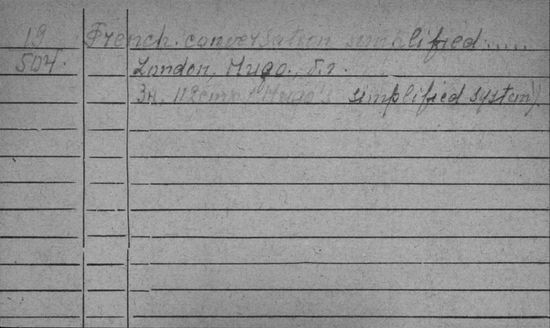 19 French conversation simplified.....
504. London, Hugo., б.г.
Зн, 112стр. (Hugo's simplified system).